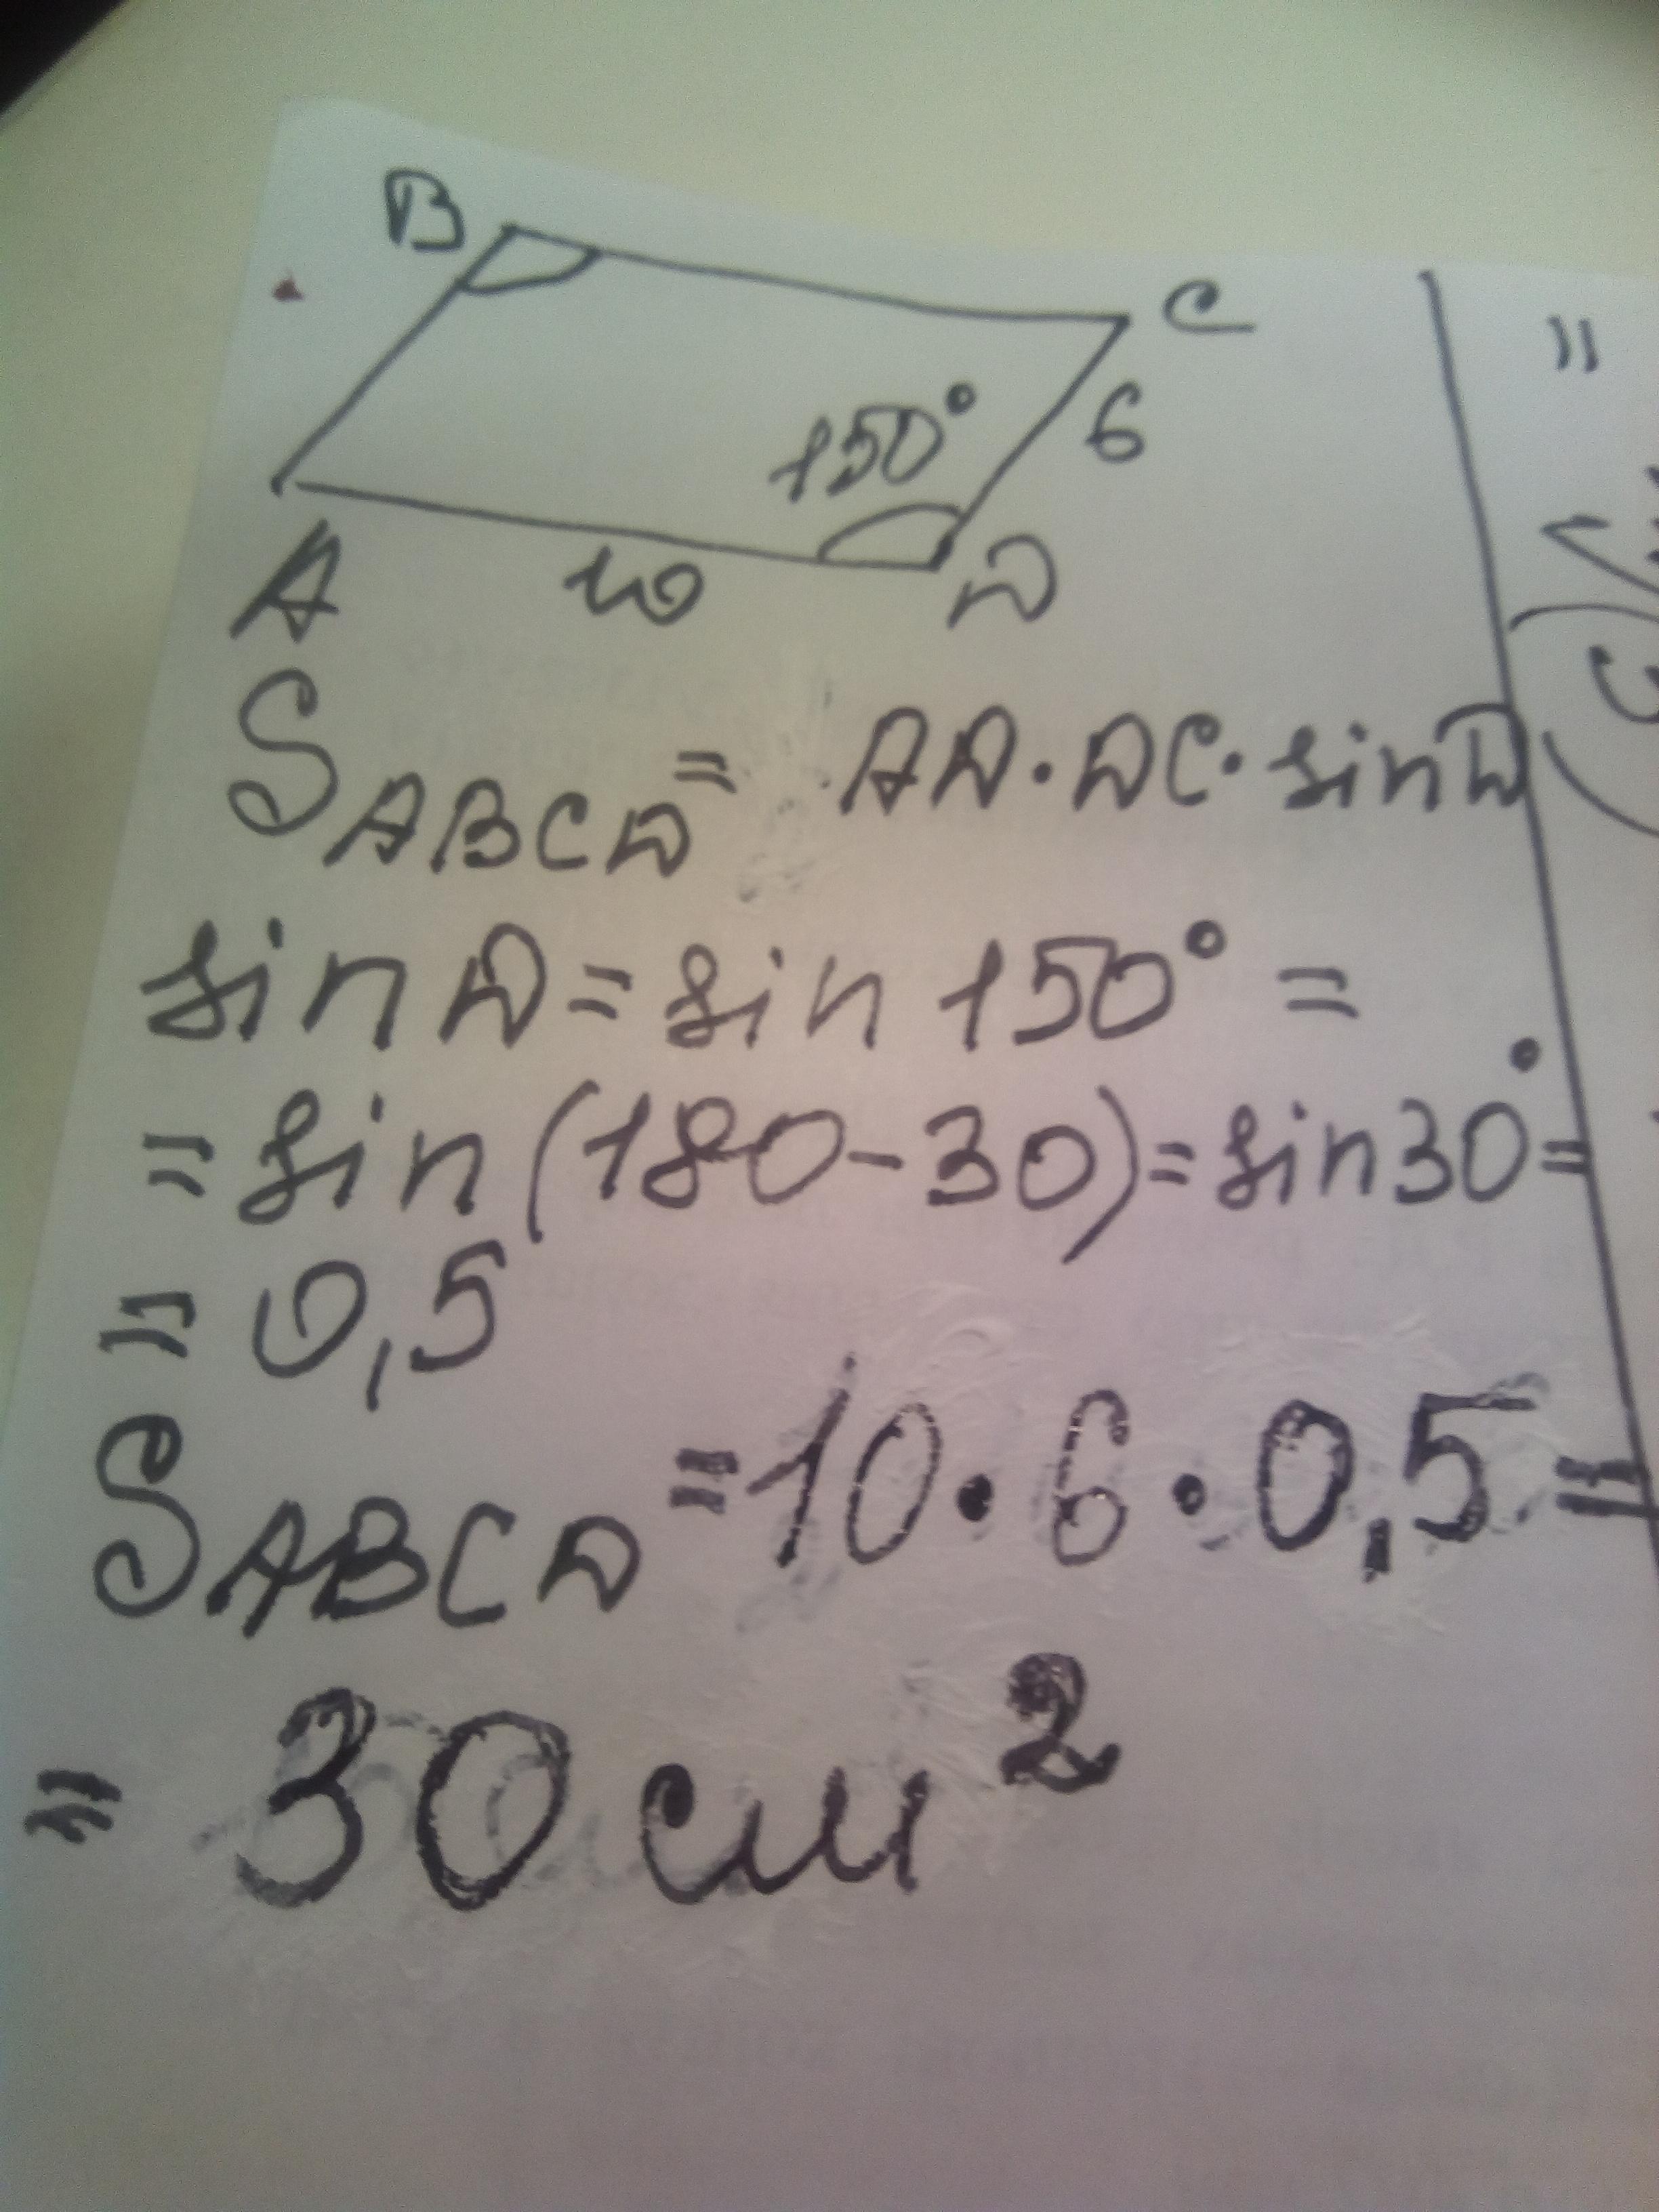 B
C
150°
6
A
10
D
S ABCD = AD·DC·sinD
sin D = sin 150° =
= sin (180-30) = sin30° =
= 0,5
S ABCD = 10·6·0,5 =
= 30 см²
=